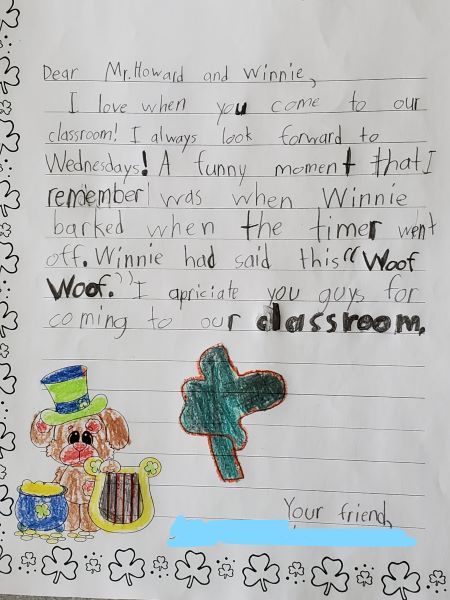 Dear Mr. Howard and Winnie,
I love when you come to our
classroom! I always look forward to
Wednesdays! A funny moment that I
remember was when Winnie
barked when the timer went
off. Winnie had said this "Woof
Woof." I apriciate you guys for
coming to our classroom.
Your friend,